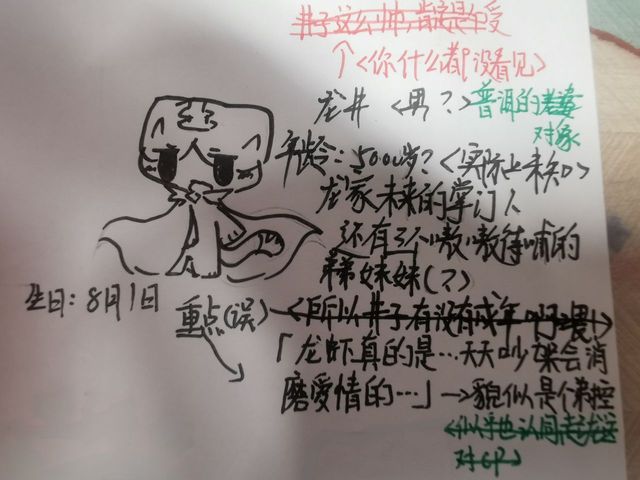 井子这么帅,肯定是个受
个<你什么都没看见>
龙井 <男?> 普洱的老婆
对象
年龄:5000岁?<实际上未知>
龙家未来的掌门人
还有3个嗷嗷待哺的
弟弟妹妹(?)
生日:8月1日
重点(误)
<所以井子有没有成年啊喂!>
「龙虾真的是…天天吵架会消
磨爱情的…」→貌似是个弟控
<似乎也认同
对CP>